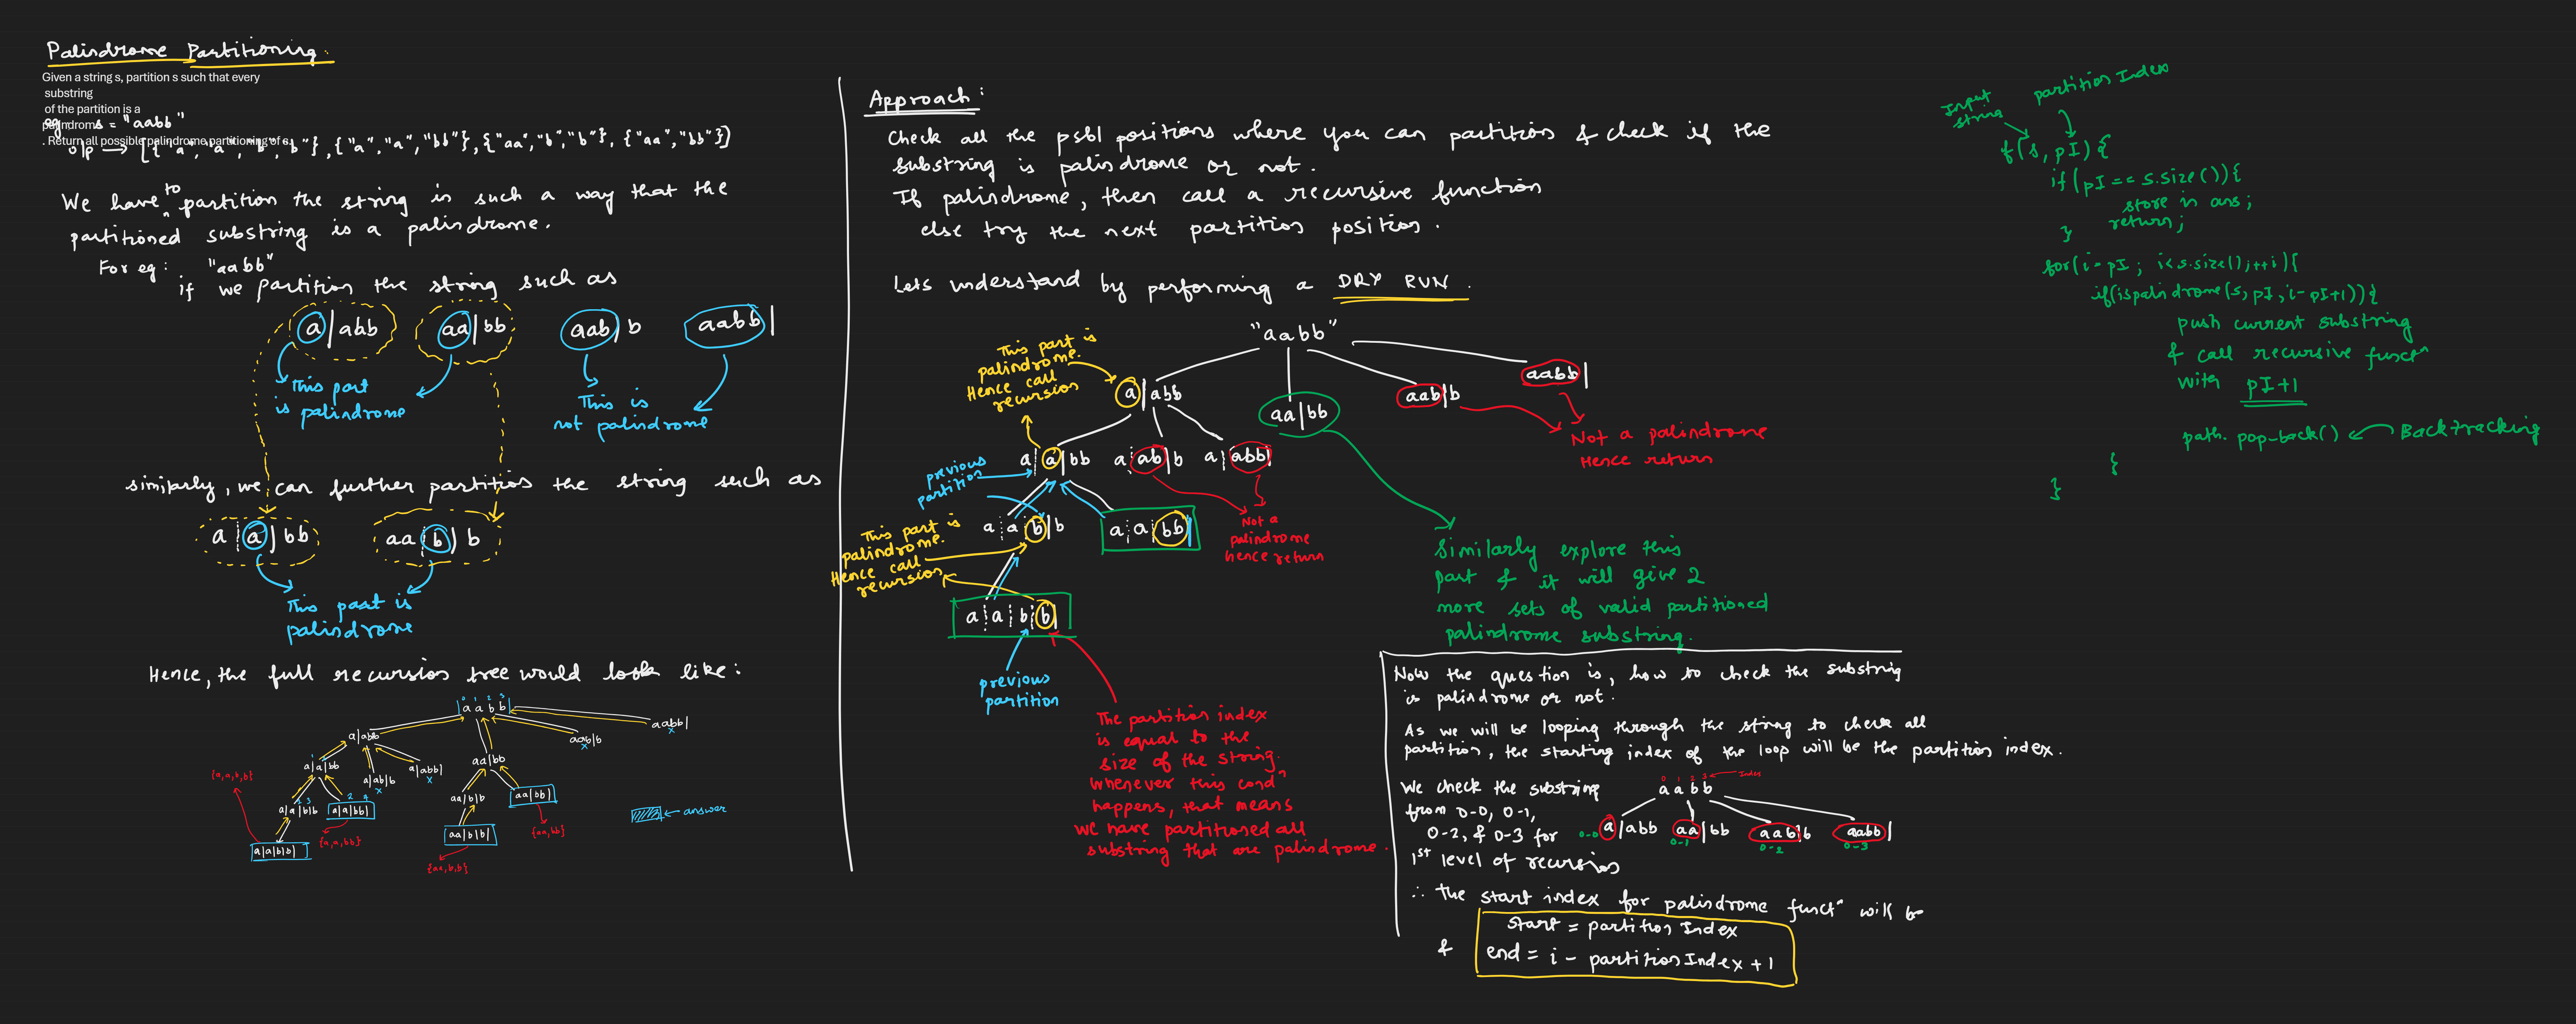 Palindrome Partitioning:
Given a string s, partition s such that every
substring
of the partition is a
palindrome
. Return all possible palindrome partitioning of s.
eg: s = "aabb"
o/p → [{"a","a","b","b"},{"a","a","bb"},{"aa","b","b"},{"aa","bb"}]
We have to partition the string in such a way that the
partitioned substring is a palindrome.
For eg: "aabb"
if we partition the string such as
a|abb aa|bb aab|b aabb|
This part
is palindrome
This is
not palindrome
similarly, we can further partition the string such as
a|a|bb aa|b|b
This part is
palindrome
Hence, the full recursion tree would look like:
0 1 2 3
a a b b
a|abb
aa|bb
aab|b
x
aabb|
x
1
a|a|bb
a|ab|b
x
a|abb|
x
{a,a,b,b}
2 3
a|a|b|b
2 4
a|a|bb|
{a,a,bb}
a|a|b|b|
aa|b|b
aa|bb|
{aa,bb}
aa|b|b|
{aa,b,b}
← answer
Approach:
Check all the psbl positions where you can partition & check if the
substring is palindrome or not.
If palindrome, then call a recursive function
else try the next partition position.
Lets understand by performing a DRY RUN.
"aabb"
This part is
palindrome.
Hence call
recursion
a|abb
aa|bb
aab|b
aabb|
Not a palindrome
Hence return
a|a|bb a|ab|b a|abb|
previous
partition
a|a|b|b
a|a|bb|
Not a
palindrome
hence return
This part is
palindrome.
Hence call
recursion
a|a|b|b|
previous
partition
The partition index
is equal to the
size of the string.
Whenever this condn
happens, that means
we have partitioned all
substring that are palindrome.
Similarly explore this
part & it will give 2
more sets of valid partitioned
palindrome substring.
Now the question is, how to check the substring
is palindrome or not.
As we will be looping through the string to check all
partition, the starting index of the loop will be the partition index.
We check the substring
from 0-0, 0-1,
0-2, & 0-3 for
1st level of recursion
0 1 2 3 ← Index
a a b b
0-0 a|abb aa|bb aab|b aabb|
0-1 0-2 0-3
∴ the start index for palindrome functn will be
start = partition Index
& end = i - partitionIndex + 1
Input
string
partition Index
f(s, pI) {
if (pI == s.size()){
store in ans;
return;
}
for(i=pI; i<s.size();++i){
if(ispalindrome(s, pI, i-pI+1)){
push current substring
& call recursive functn
with pI+1
path.pop-back() ← Backtracking
}
}